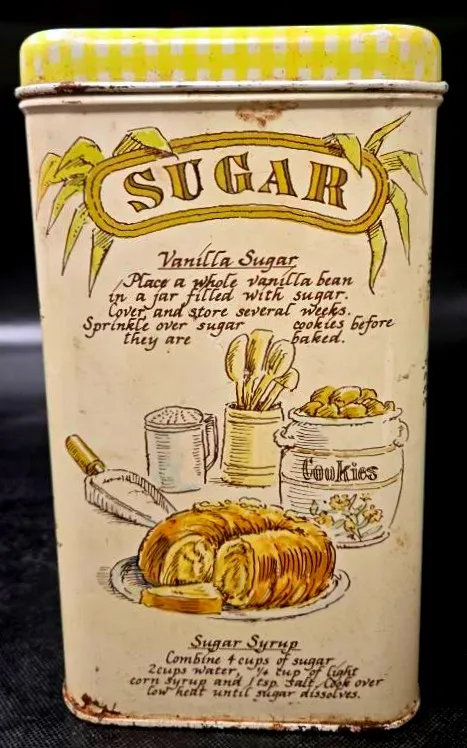 SUGAR
Vanilla Sugar
Place a whole vanilla bean
in a jar filled with sugar.
Cover and store several weeks.
Sprinkle over sugar cookies before
they are baked.
Cookies
Sugar Syrup
Combine 4 cups of sugar
2 cups water, ¼ cup of light
corn syrup and 1 tsp. salt. Cook over
low heat until sugar dissolves.